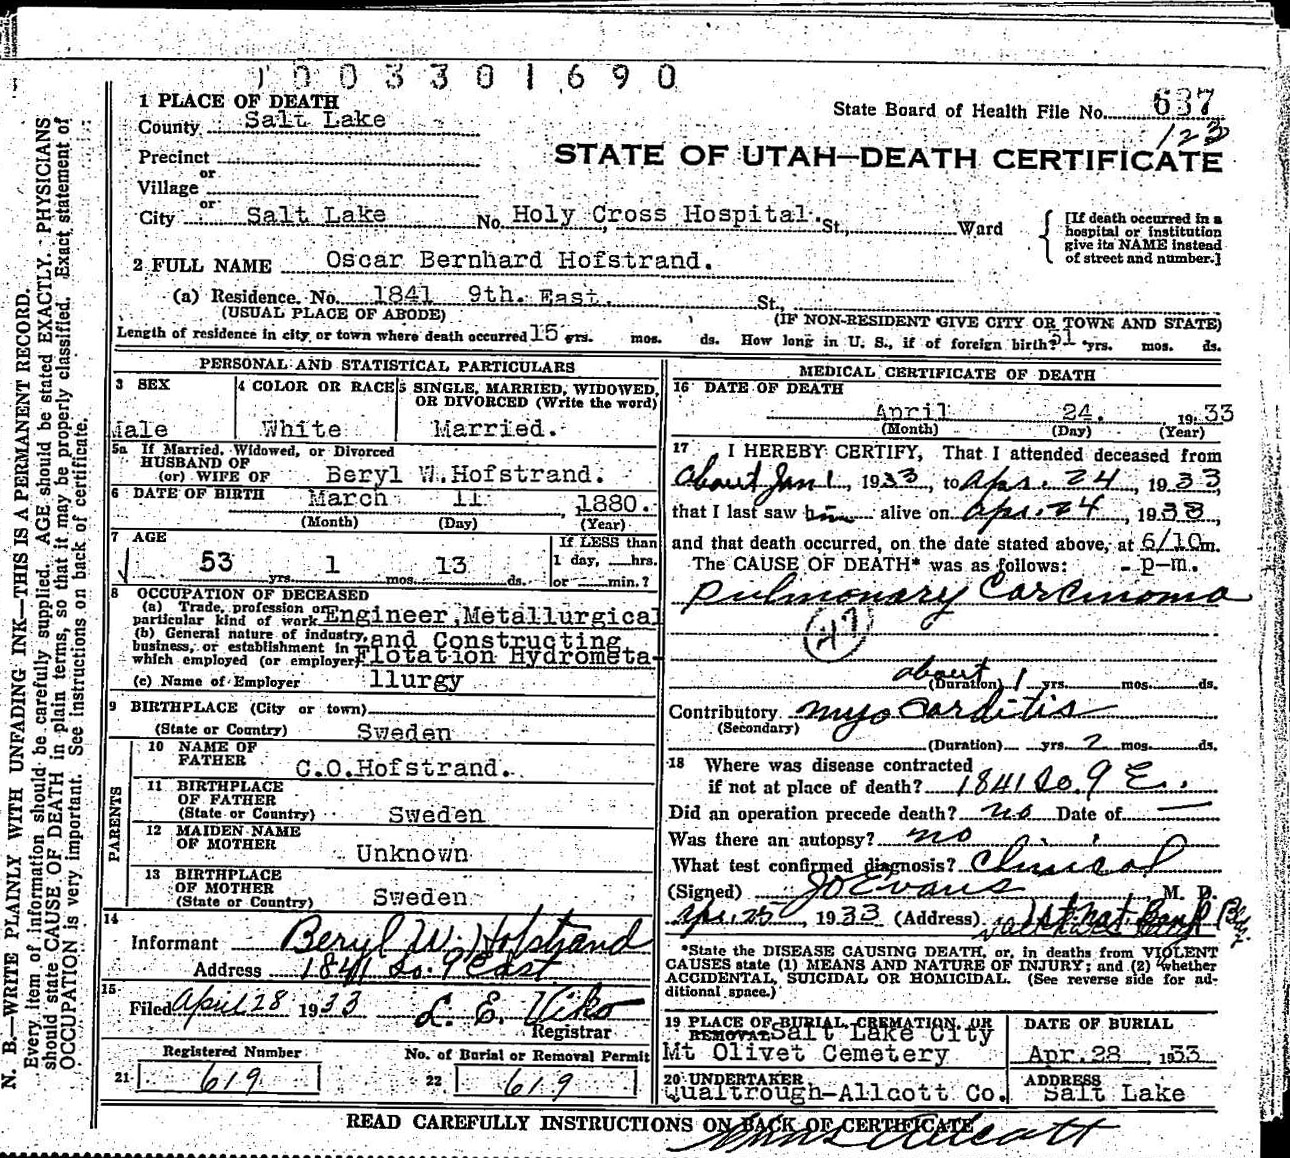 1003301690
1 PLACE OF DEATH
State Board of Health File No. 637
County Salt Lake
123
Precinct
STATE OF UTAH—DEATH CERTIFICATE
or
Village
or
City Salt Lake No. Holy Cross Hospital. St., Ward
[If death occurred in a
hospital or institution
give its NAME instead
of street and number.]
2 FULL NAME Oscar Bernhard Hofstrand.
(a) Residence. No. 1841 9th. East. St.,
(USUAL PLACE OF ABODE) (IF NON-RESIDENT GIVE CITY OR TOWN AND STATE)
Length of residence in city or town where death occurred 15 yrs. mos. ds. How long in U. S., if of foreign birth? 31 yrs. mos. ds.
PERSONAL AND STATISTICAL PARTICULARS
3 SEX
Male
4 COLOR OR RACE
White
5 SINGLE, MARRIED, WIDOWED,
OR DIVORCED (Write the word)
Married.
5a If Married, Widowed, or Divorced
HUSBAND OF
(or) WIFE OF Beryl W. Hofstrand.
6 DATE OF BIRTH March 11, 1880.
(Month) (Day) (Year)
7 AGE
53 yrs. 1 mos. 13 ds.
If LESS than
1 day, hrs.
or min.?
8 OCCUPATION OF DECEASED
(a) Trade, profession or
particular kind of work Engineer, Metallurgical
(b) General nature of industry,
business, or establishment in and Constructing
which employed (or employer) Flotation Hydrometa-
(c) Name of Employer llurgy
9 BIRTHPLACE (City or town)
(State or Country) Sweden
PARENTS
10 NAME OF
FATHER C.O.Hofstrand.
11 BIRTHPLACE
OF FATHER
(State or Country) Sweden
12 MAIDEN NAME
OF MOTHER Unknown
13 BIRTHPLACE
OF MOTHER
(State or Country) Sweden
14
Informant Beryl W. Hofstrand
Address 1841 So. 9 East
15
Filed April 28 1933 L. E. Viko
Registrar
Registered Number
21 619
No. of Burial or Removal Permit
22 619
MEDICAL CERTIFICATE OF DEATH
16 DATE OF DEATH
April 24. 1933
(Month) (Day) (Year)
17 I HEREBY CERTIFY, That I attended deceased from
about Jan 1, 1933, to Apr. 24, 1933,
that I last saw him alive on Apr. 24, 1933,
and that death occurred, on the date stated above, at 6/10 m.
The CAUSE OF DEATH* was as follows: - p-m.
Pulmonary Carcinoma
47
about
(Duration) 1 yrs. mos. ds.
Contributory Myocarditis
(Secondary)
(Duration) yrs. 2 mos. ds.
18 Where was disease contracted
if not at place of death? 1841 So. 9 E.
Did an operation precede death? no Date of —
Was there an autopsy? no
What test confirmed diagnosis? Clinical
(Signed) J O Evans M. D.
Apr. 25 1933 (Address) 1st Nat. Bank Bldg.
*State the DISEASE CAUSING DEATH, or, in deaths from VIOLENT
CAUSES state (1) MEANS AND NATURE OF INJURY; and (2) whether
ACCIDENTAL, SUICIDAL OR HOMICIDAL. (See reverse side for ad-
ditional space.)
19 PLACE OF BURIAL, CREMATION, OR
REMOVAL Salt Lake City
Mt Olivet Cemetery
DATE OF BURIAL
Apr. 28, 1933
20 UNDERTAKER
Qualtrough-Allcott Co.
ADDRESS
Salt Lake
READ CAREFULLY INSTRUCTIONS ON BACK OF CERTIFICATE
N. B.—WRITE PLAINLY WITH UNFADING INK—THIS IS A PERMANENT RECORD.
Every item of information should be carefully supplied. AGE should be stated EXACTLY. PHYSICIANS
should state CAUSE OF DEATH in plain terms, so that it may be properly classified. Exact statement of
OCCUPATION is very important. See instructions on back of certificate.